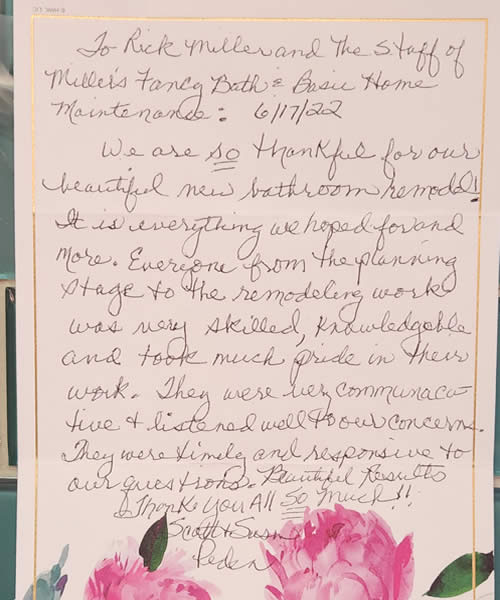 To Rick Miller and The Staff of
Miller's Fancy Bath & Basic Home
Maintenance: 6/17/22
We are so thankful for our
beautiful new bathroom remodel!
It is everything we hoped for and
more. Everyone from the planning
stage to the remodeling work
was very skilled, knowledgeable
and took much pride in their
work. They were very communaca-
tive & listened well to our concerns.
They were timely and responsive to
our questions. Beautiful Results
Thank You All So Much!!
Scott & Susan
Peden